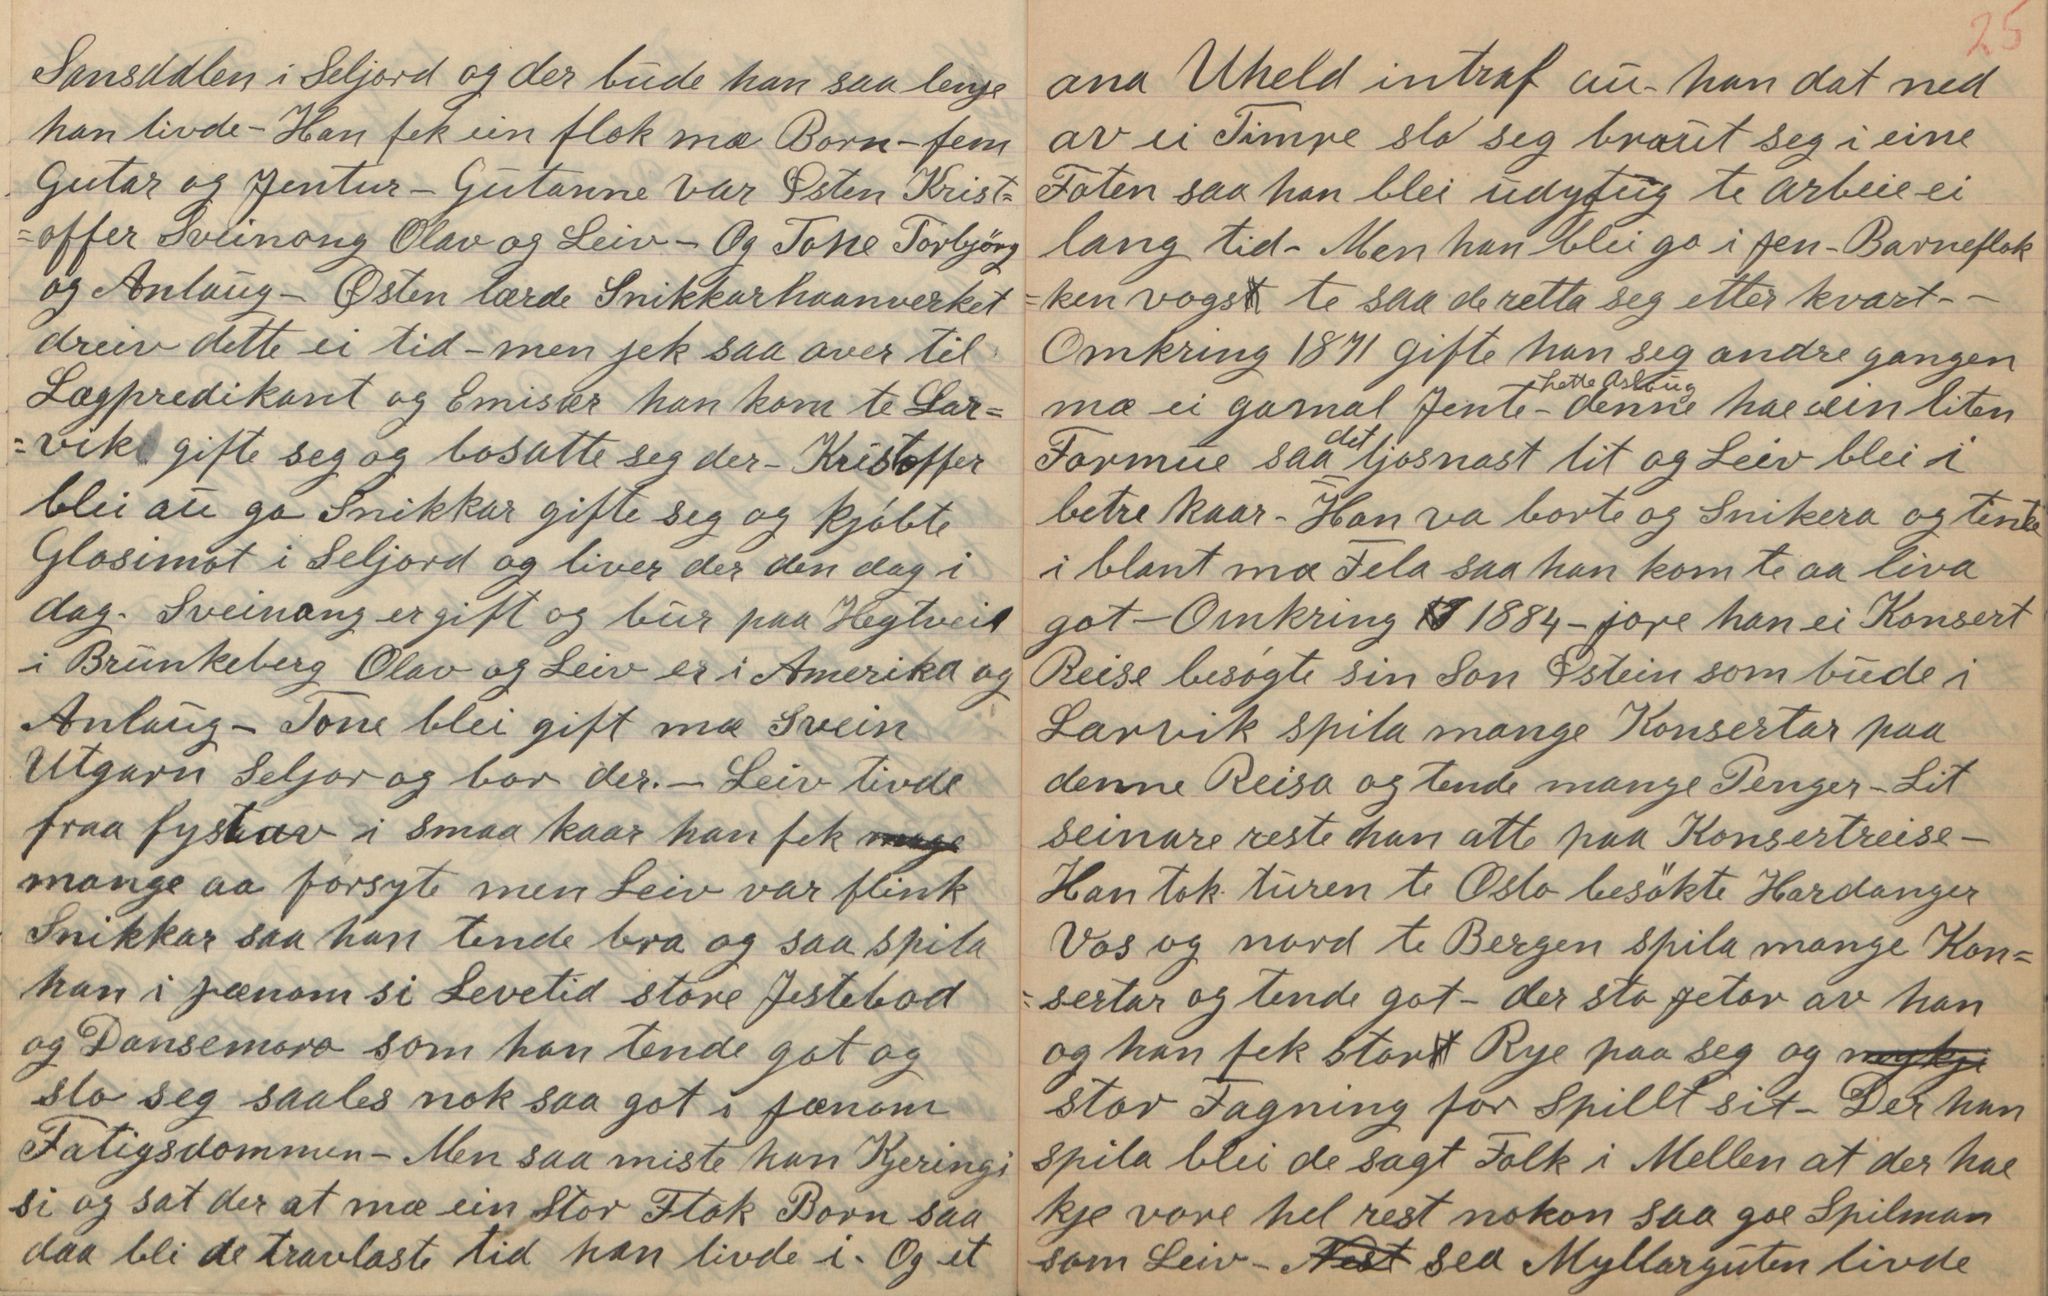 Sansdalen i Seljord og der bude han saa lenje
han livde - Han fek ein flok mæ Born - fem
Gutar og Jentur - Gutanne var Østen Krist=
=offer Sveinong Olav og Leiv - Og Tone Torbjörg
og Anlaug - Østen lærde Snikkarhaanverket
dreiv dette ei tid - men jek saa over til
Lægpredikant og Emisær han kom te Lar=
=vik gifte seg og bosatte seg der - Kristoffer
blei au go Snikkar gifte seg og kjóbte
Glosimot i Seljord og liver der den dag i
dag. Sveinong er gift og bur paa Hegtveit
i Brunkeberg Olav og Leiv er i Amerika og
Anlaug - Tone blei gift mæ Svein
Utgarn Seljor og bor der. - Leiv livde
fraa fystav i smaa kaar han fek
mange aa forsyte men Leiv var flink
Snikkar saa han tende bra og saa spila
han i jænom si Levetid store Jestebod
og Dansemoro som han tende got og
slo seg saales nok saa got i jænom
Fatigsdommen - Men saa miste han Kjeringi
si og sat der at mæ ein Stor Flok Born saa
daa bli de travlaste tid han livde i. Og et
25
ana Uheld intraf au - han dat ned
av ei Timre slo seg braut seg i eine
Foten saa han blei udyfug te arbeie ei
lang tid - Men han blei go i jen - Barneflok
=ken vogst te saa de retta seg etter kvart - -
Omkring 1871 gifte han seg andre gangen
mæ ei gamal Jente - hette Aslaug denne hae ein liten
Formue saa det ljosnast lit og Leiv blei i
betre kaar - Han va borte og Snikera og tente
i blant mæ Fela saa han kom te aa liva
got - Omkring 1884 - jore han ei Konsert
Reise besógte sin Son Østein som bude i
Larvik spila mange Konsertar paa
denne Reisa og tende mange Penger - Lit
seinare reste han atte paa Konsertreise -
Han tok turen te Oslo besökte Hardanger
Vos og nord te Bergen spila mange Kon=
=sertar og tende got - der sto jetor av han
og han fek stor Rye paa seg og
stor Fagning for Spillt sit - Der han
spila blei de sagt Folk i Mellen at der hae
kje vore hel rest nokon saa goe Spilman
som Leiv - sea Myllarguten livde